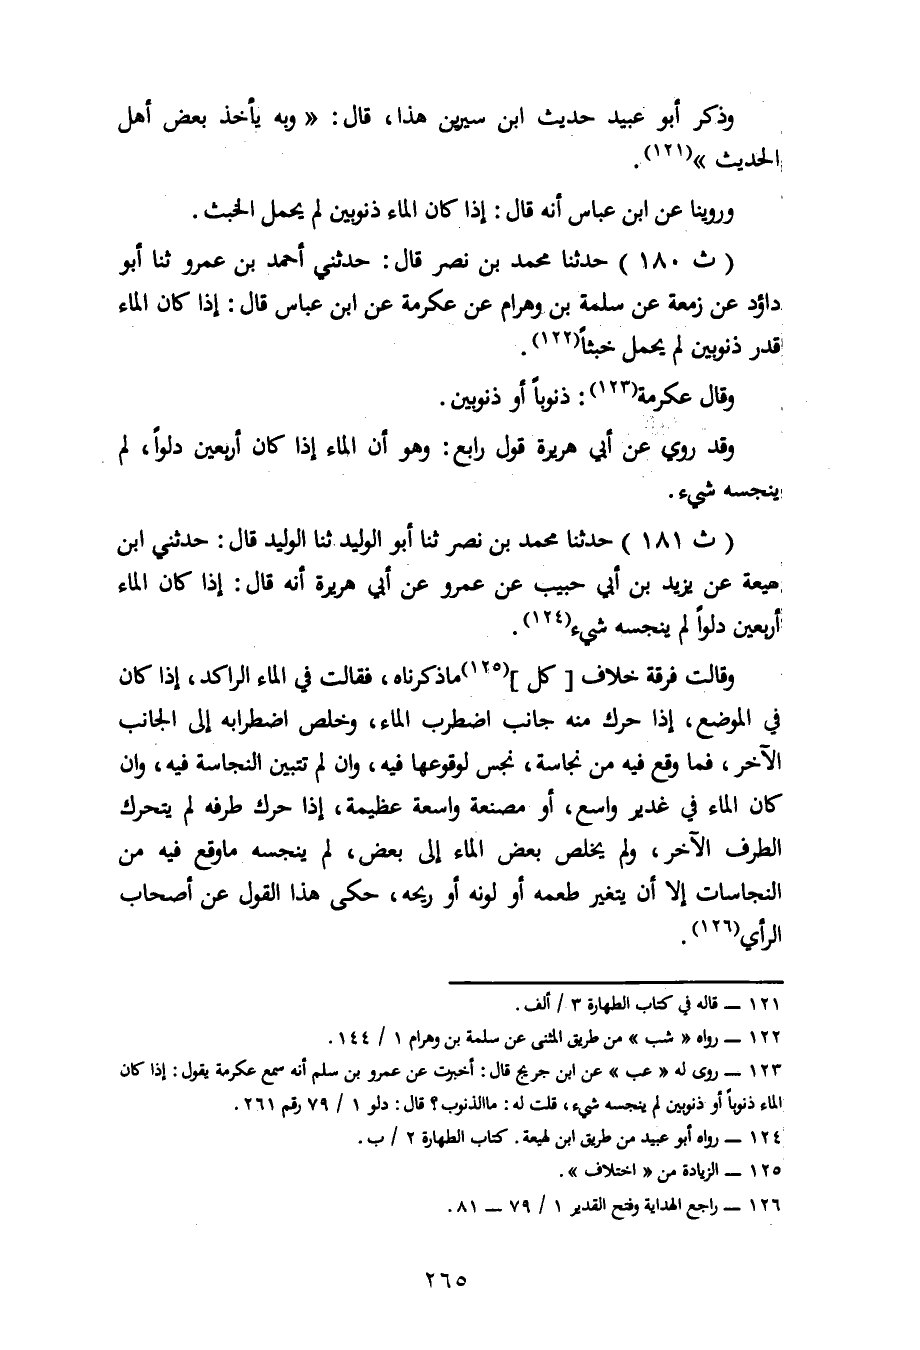 وذكر أبو عبيد حديث ابن سيرين هذا، قال: « وبه يأخذ بعض أهل
الحديث »(١٢١).
وروينا عن ابن عباس أنه قال: إذا كان الماء ذنوبين لم يحمل الخبث.
( ث ١٨٠ ) حدثنا محمد بن نصر قال: حدثني أحمد بن عمرو ثنا أبو
داؤد عن زمعة عن سلمة بن وهرام عن عكرمة عن ابن عباس قال: إذا كان الماء
قدر ذنوبين لم يحمل خبثاً(١٢٢).
وقال عكرمة(١٢٣): ذنوباً أو ذنوبين.
وقد روي عن أبي هريرة قول رابع: وهو أن الماء إذا كان أربعين دلواً، لم
ينجسه شيء.
( ث ١٨١ ) حدثنا محمد بن نصر ثنا أبو الوليد ثنا الوليد قال: حدثني ابن
هيعة عن يزيد بن أبي حبيب عن عمرو عن أبي هريرة أنه قال: إذا كان الماء
أربعين دلواً لم ينجسه شيء(١٢٤).
وقالت فرقة خلاف [ كل ](١٢٥)ماذكرناه، فقالت في الماء الراكد، إذا كان
في الموضع، إذا حرك منه جانب اضطرب الماء، وخلص اضطرابه إلى الجانب
الآخر، فما وقع فيه من نجاسة، نجس لوقوعها فيه، وان لم تتبين النجاسة فيه، وان
كان الماء في غدير واسع، أو مصنعة واسعة عظيمة، إذا حرك طرفه لم يتحرك
الطرف الآخر، ولم يخلص بعض الماء إلى بعض، لم ينجسه ماوقع فيه من
النجاسات إلا أن يتغير طعمه أو لونه أو ريحه، حكى هذا القول عن أصحاب
الرأي(١٢٦).
١٢١ ــ قاله في كتاب الطهارة ٣ / ألف.
١٢٢ ــ رواه « شب » من طريق المثنى عن سلمة بن وهرام ١ / ١٤٤.
١٢٣ ــ روى له « عب » عن ابن جريج قال: أخبرت عن عمرو بن سلم أنه سمع عكرمة يقول: إذا كان
الماء ذنوباً أو ذنوبين لم ينجسه شيء، قلت له: ماالذنوب؟ قال: دلو ١ / ٧٩ رقم ٢٦١.
١٢٤ ــ رواه أبو عبيد من طريق ابن لهيعة. كتاب الطهارة ٢ / ب.
١٢٥ ــ الزيادة من « اختلاف ».
١٢٦ ــ راجع الهداية وفتح القدير ١ / ٧٩ ــ ٨١.
٢٦٥